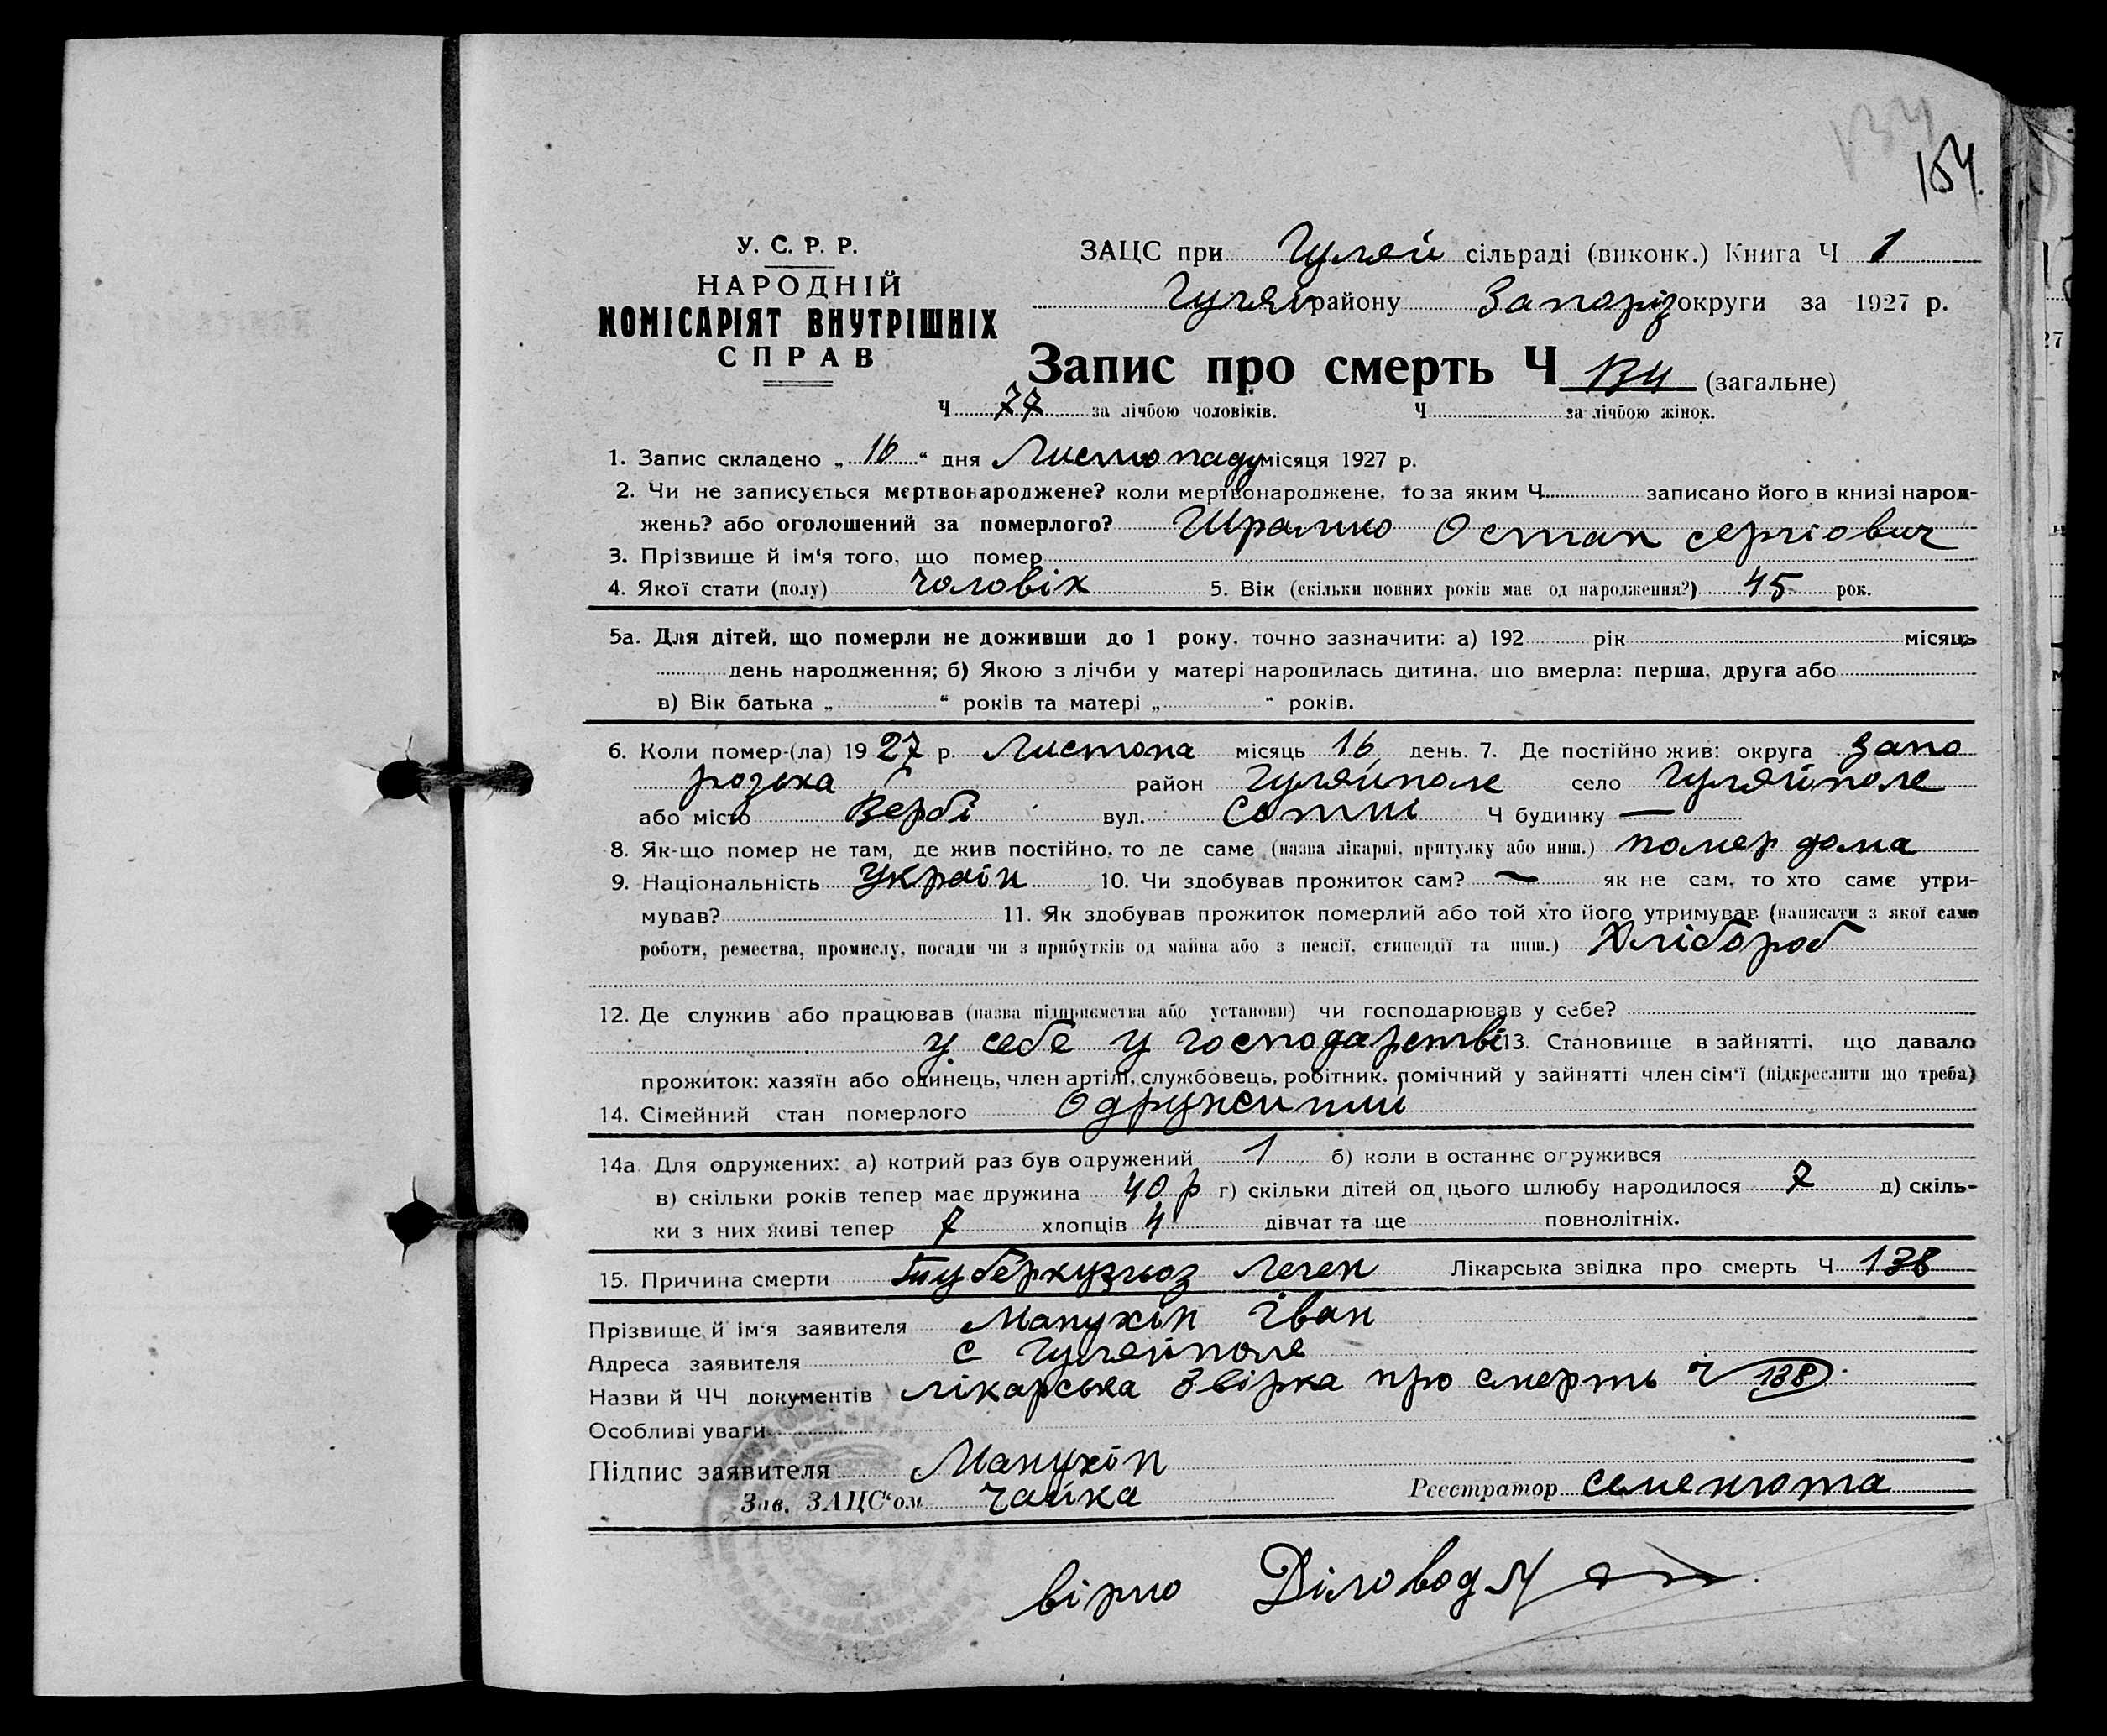 134
154.
У. С. Р. Р.
НАРОДНІЙ
КОМІСАРІЯТ ВНУТРІШНІХ
СПРАВ
ЗАЦС при Гуляй сільраді (виконк.) Книга Ч 1
Гуляй району Запоріз округи за 1927 р.
Запис про смерть Ч 134 (загальне)
Ч 77 за лічбою чоловіків. Ч за лічбою жінок.
1. Запис складено „ 16 “ дня Листопаду місяця 1927 р.
2. Чи не записується мертвонароджене? коли мертвонароджене, то за яким Ч. записано його в книзі народ-
жень? або оголошений за померлого?
Шрамко Остап сергіович
3. Прізвище й ім‘я того, що помер
4. Якої стати (полу) чоловік 5. Вік (скільки повних років має од народження?) 45 рок.
5а. Для дітей, що померли не доживши до 1 року, точно зазначити: а) 192 рік місяць
день народження; б) Якою з лічби у матері народилась дитина, що вмерла: перша, друга або
в) Вік батька „ “ років та матері „ “ років.
6. Коли помер-(ла) 19 27 р. Листопа місяць 16 день. 7. Де постійно жив: округа Запо
розька район Гуляйполе село Гуляйполе
або місто Вербі вул. Сотні Ч будинку —
8. Як-що помер не там, де жив постійно, то де саме (назва лікарні, притулку або инш.) помер дома
9. Національність Україн 10. Чи здобував прожиток сам? — як не сам, то хто саме утри-
мував? 11. Як здобував прожиток померлий або той хто його утримував (написати з якої саме
роботи, ремества, промислу, посади чи з прибутків од майна або з пенсії, стипендії та инш.) Хлібороб
12. Де служив або працював (назва підприємства або установи) чи господарював у себе?
у себе у господарстві 13. Становище в зайнятті, що давало
прожиток: хазяїн або одинець, член артілі, службовець, робітник, помічний у зайнятті член сім‘ї (підкреслити що треба)
14. Сімейний стан померлого
14а. Для одружених: а) котрий раз був одружений 1 б) коли в останнє одружився
в) скільки років тепер має дружина 40 р г) скільки дітей од цього шлюбу народилося 7 д) скіль-
ки з них живі тепер 7 хлопців 4 дівчат та ще повнолітніх.
15. Причина смерти Туберкузьоз Леген Лікарська звідка про смерть Ч 138
Прізвище й ім‘я заявителя Манухін Іван
Адреса заявителя с Гуляйполе
Назви й ЧЧ документів лікарська звірка про смерть ч 138.
Особливі уваги
Підпис заявителя Манухін
Зав. ЗАЦС‘ом Чайка Реєстратор Семенюта
вірно Діловод